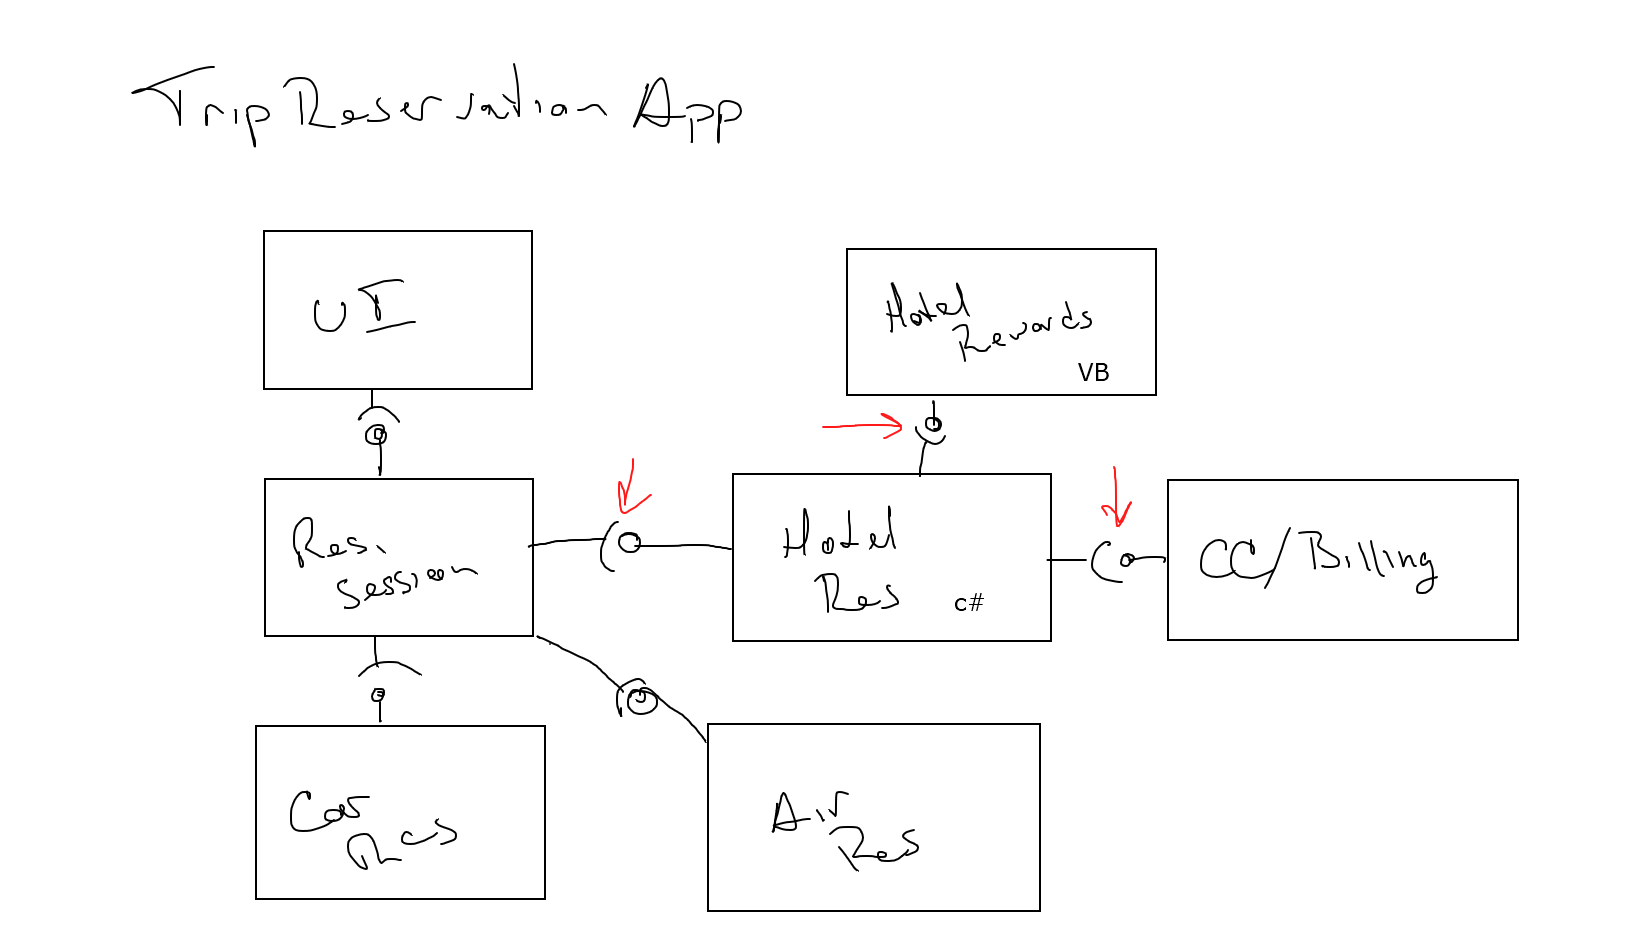 Trip Reservation App
UI
Hotel
Rewards
VB
Res.
Session
Hotel
Res
c#
CC/Billing
Car
Res
Air
Res